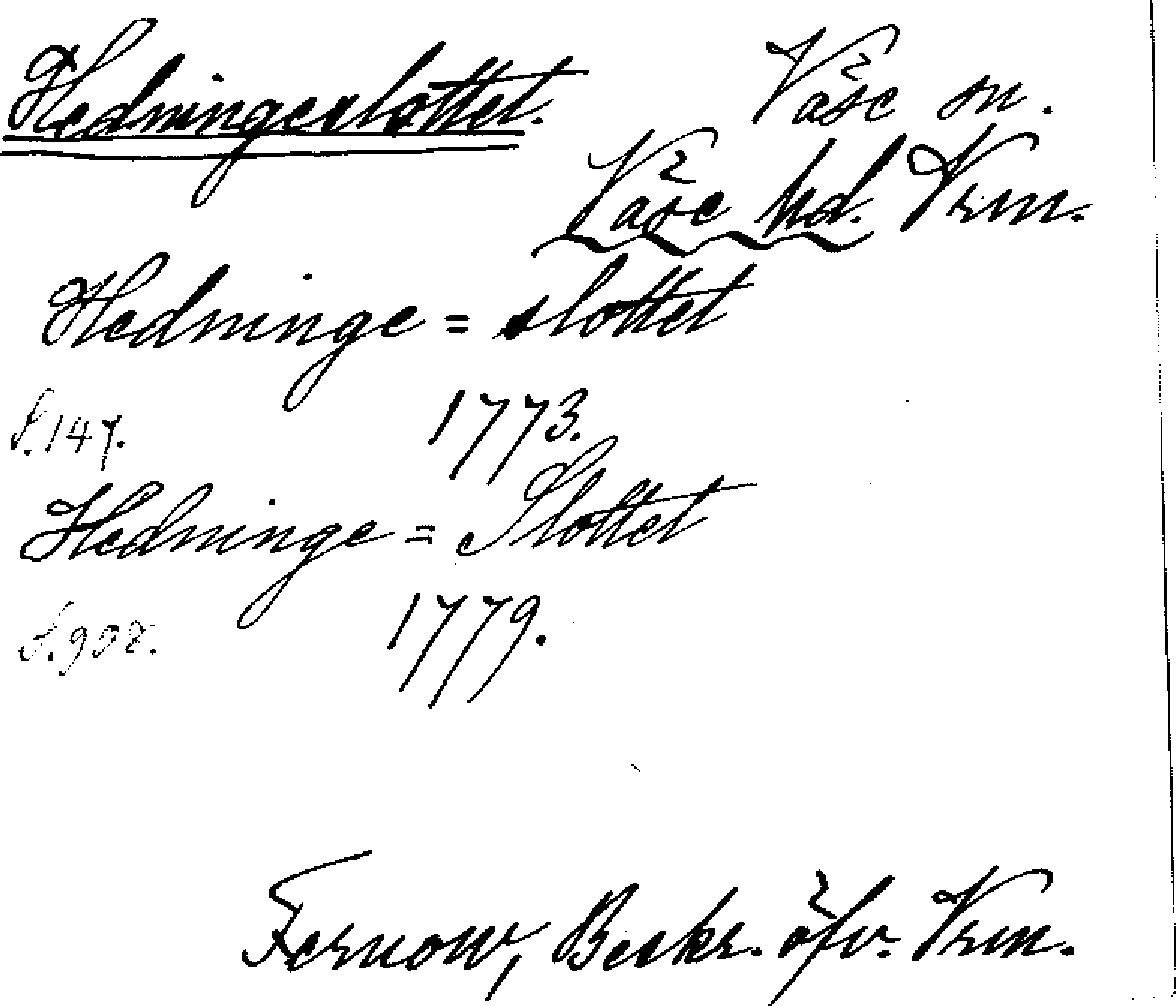 Hedningeslottet. Väse sn.
Väse hd. Vrm.
Hedninge=slottet
S.147. 1773.
Hedninge=Slottet
S.908. 1779.
Fernow, Beskr. öfv. Vrm.